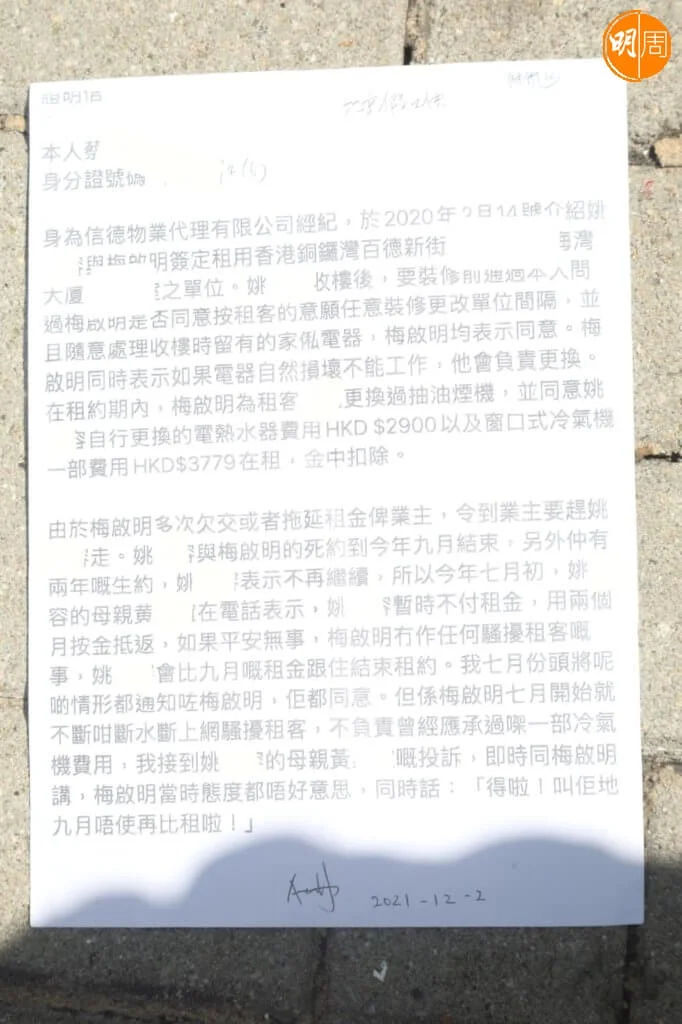 明周
證明信
本人
身分證號碼
身為信德物業代理有限公司經紀，於2020年9月14號介紹姚
與梅啟明簽定租用香港銅鑼灣百德新街 海灣
大廈 室之單位。姚 收樓後，要裝修前通過本人問
過梅啟明是否同意按租客的意願任意裝修更改單位間隔，並
且隨意處理收樓時留有的家俬電器，梅啟明均表示同意。梅
啟明同時表示如果電器自然損壞不能工作，他會負責更換。
在租約期內，梅啟明為租客 更換過抽油煙機，並同意姚
容自行更換的電熱水器費用HKD $2900以及窗口式冷氣機
一部費用HKD$3779在租，金中扣除。
由於梅啟明多次欠交或者拖延租金俾業主，令到業主要趕姚
走。姚 容與梅啟明的死約到今年九月結束，另外仲有
兩年嘅生約，姚 容表示不再繼續，所以今年七月初，姚
容的母親黄 在電話表示，姚 容暫時不付租金，用兩個
月按金抵返，如果平安無事，梅啟明冇作任何騷擾租客嘅
事，姚 會比九月嘅租金跟住結束租約。我七月份頭將呢
啲情形都通知咗梅啟明，佢都同意。但係梅啟明七月開始就
不斷咁斷水斷上網騷擾租客，不負責曾經應承過㗎一部冷氣
機費用，我接到姚 容的母親黃 嘅投訴，即時同梅啟明
講，梅啟明當時態度都唔好意思，同時話：「得啦！叫佢地
九月唔使再比租啦！」
2021-12-2